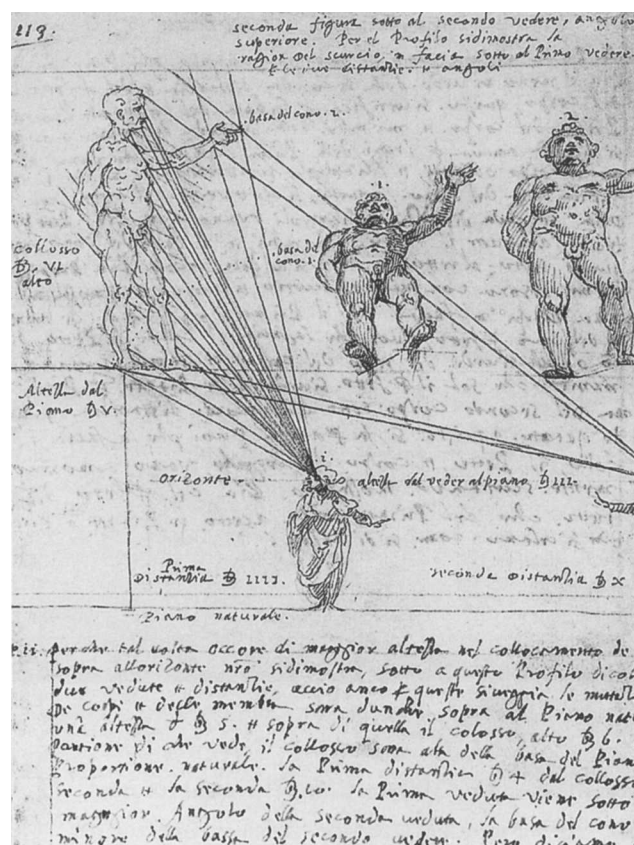 119.
seconda figura sotto al secondo vedere, angolo
superiore. Per el Profilo sidimostra la
raggion del scurcio, in facia sotto al Primo vedere.
distantie. angoli
.basa del cono. 2.
2.
1.
.basa del
cono. 1.
collosso
VI
alto
Altessa dal
Piano V.
orizonte.
altessa del veder al piano III.
Prima
Distantia IIII.
seconda Distantia X
Piano naturale.
Perche tal volta occore di maggior altessa nel collocamento de
sopra all orizonte nro sidimostra, sotto a questo Profilo di
due vedute distantie, accio anco queste siveggia le
De corpi delle membra sara dunque, sopra al Piano
una altessa 5. sopra di quella il colosso, alto 6.
che vede, il collosso sara della basa del
Proportione naturale. la Prima distantia 4 dal collosso
seconda la seconda la Prima veduta viene sotto
maggior. Angolo della seconda veduta, la basa del cono
minore della bassa del secondo vedere. Pero